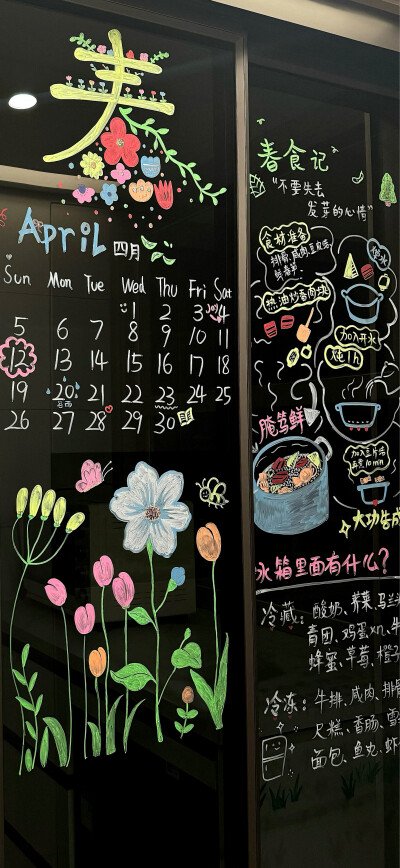 春
April 四月
Sun Mon Tue Wed Thu Fri Sat
1 2 3 4
5 6 7 8 9 10 11
12 13 14 15 16 17 18
19 20 21 22 23 24 25
谷雨
26 27 28 29 30
春食记
"不要失去
发芽的心情"
食材准备
排骨、咸肉、豆皮结
鲜春笋
焯水
热油炒香肉块
加入开水
炖1h
腌笃鲜
再煮10min
大功告成
冰箱里面有什么?
冷藏: 酸奶、荠菜、马兰
青团、鸡蛋×n、牛
蜂蜜、草莓、橙
冷冻: 牛排、咸肉、排骨
尺糕、香肠、雪
面包、鱼丸、虾